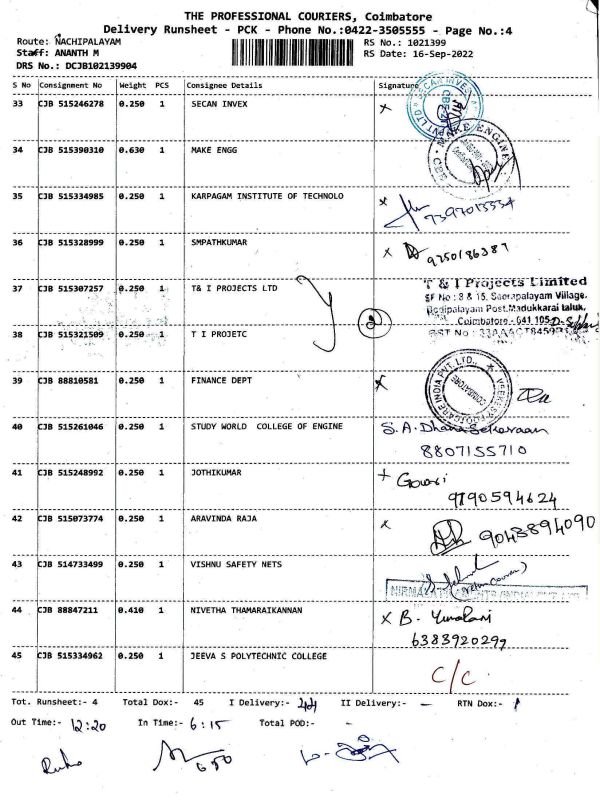 THE PROFESSIONAL COURIERS, Coimbatore
Delivery Runsheet - PCK - Phone No.:0422-3505555 - Page No.:4
Route: NACHIPALAYAM RS No.: 1021399
Staff: ANANTH M RS Date: 16-Sep-2022
DRS No.: DCJB102139904
S No Consignment No Weight PCS Consignee Details Signature
33 CJB 515246278 0.250 1 SECAN INVEX x
34 CJB 515390310 0.630 1 MAKE ENGG
35 CJB 515334985 0.250 1 KARPAGAM INSTITUTE OF TECHNOLO x
36 CJB 515328999 0.250 1 SMPATHKUMAR x 9250186387
37 CJB 515307257 0.250 1 T& I PROJECTS LTD T & I Projects Limited
SF No : 8 & 15, Seerapalayam Village,
Bodipalayam Post, Madukkarai taluk,
Coimbatore - 641 105
38 CJB 515321509 0.250 1 T I PROJETC 2
39 CJB 88810581 0.250 1 FINANCE DEPT x
40 CJB 515261046 0.250 1 STUDY WORLD COLLEGE OF ENGINE S.A. Dhana Sekaraan
8807155710
41 CJB 515248992 0.250 1 JOTHIKUMAR + Gowri
9790594624
42 CJB 515073774 0.250 1 ARAVINDA RAJA x 9043894090
43 CJB 514733499 0.250 1 VISHNU SAFETY NETS
44 CJB 88847211 0.410 1 NIVETHA THAMARAIKANNAN x B.
6383920297
45 CJB 515334962 0.250 1 JEEVA S POLYTECHNIC COLLEGE C/C
Tot. Runsheet:- 4 Total Dox:- 45 I Delivery:- 44 II Delivery:- - RTN Dox:- 1
Out Time:- 12:20 In Time:- 6:15 Total POD:- -
650